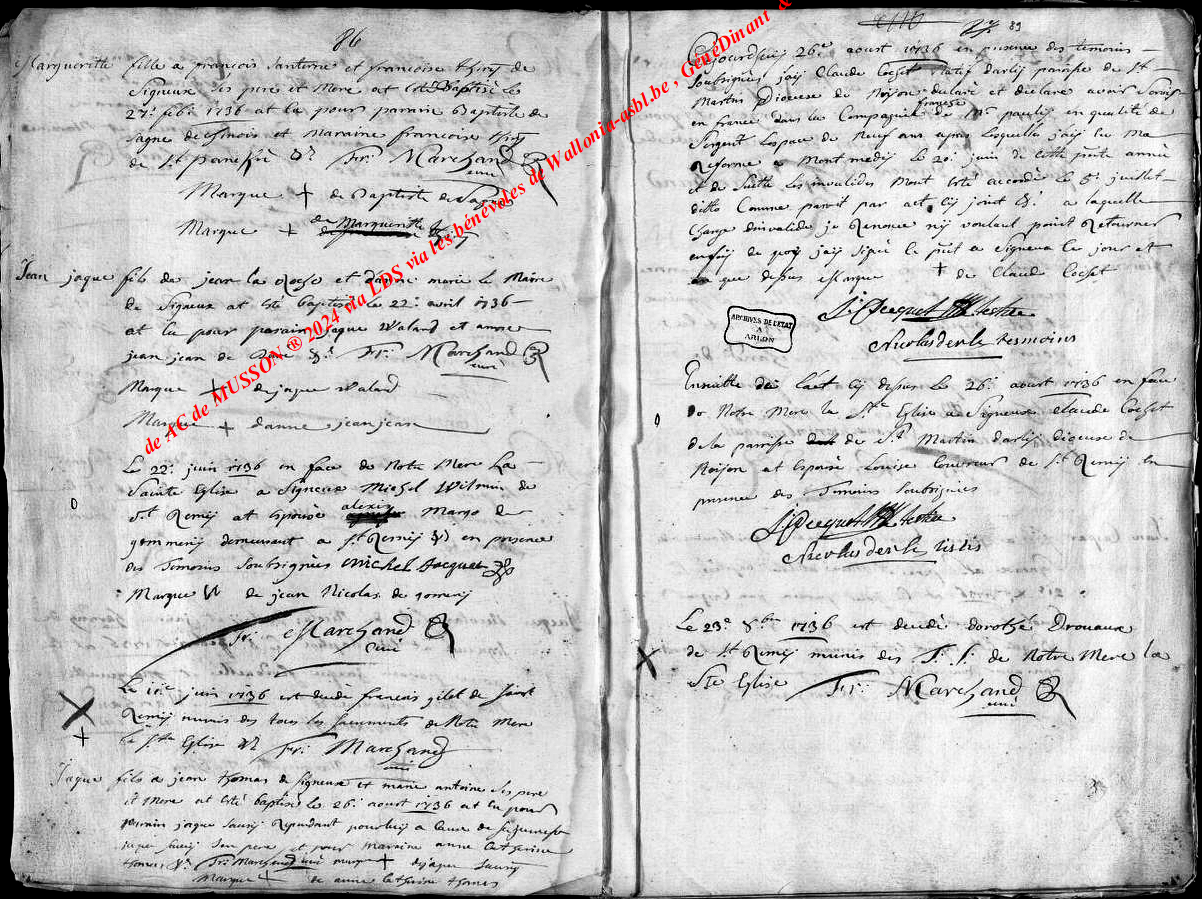 86
Margueritte fille a françois Santerne et francoise thiry de
Signeux ses pere et Mere at esté Baptisé le
27: feb: 1736 at eu pour parain Baptiste de
et Maraine francoise thiry
de St Fr: Marchand
curé
Marque + de Baptiste de
Marque + de Margueritte
Jean jaque fils de jean la et d'anne marie le Maire
de Signeux at esté baptisé le 22: avril 1736
at eu pour parain jaque Walard et anne
jean jean de Fr: Marchand
curé
Marque + de jaque Walard
Marque + d'anne jean jean
Le 22: juin 1736 en face de Notre Mere La
Sainte Eglise a Signeux Michel Wilmin de
St Remij at Epousé alexis Margo de
gommerij demeurant a St Remij en presence
des Temoins Soubsignés Michel Jacquet
Marque de jean Nicolas de gomerij
Fr: Marchand
curé
Le juin 1736 est decedé francois gilet de Saint
Remij munis des tous les sacrements de Notre Mere
la Ste Eglise Fr: Marchand
curé
Jaque fils a jean thomas de Signeux et marie antoine ses pere
et Mere at esté baptisé le 26: aoust 1736 at eu pour
parain jaque Saurij Repondant pour luy a Cause de sa jeunesse
Saurij Son pere et pour Maraine anne Catherine
thomas Fr: Marchand curé marque + de jaque Saurij
Marque + de anne catherine thomas
89
Cejourdhuy 26e aoust 1736 en presence des temoins
Soubsignés jaij Claude Cocset Natif darlij paroisse de St
Martin Diocese de Noijon declaré et declare avoir Servis
en france dans la Compagnie francoise de Mr paulij en qualité de
Sergent Lespace de Neuf ans apres Lesquelles jaij eu Ma
Reforme a Mont medij le 20: juin de Cette pnte année
et de Suitte Les invalides Mont esté accordés le 5: juillet
ditto Comme paroit par act Cij joint a laquelle
Charge dinvalide je Renonce nij voulant point Retourner
enfoij de quoy jaij Signé le pnt a Signeux le jour et
an que dessus Marque + de Claude Cocset
J: Pecquet testis
ARCHIVES DE L'ETAT
A
ARLON
Nicolas derle tesmoins
Ensuitte de l'act Cij dessus Le 26: aoust 1736 en face
de Notre Mere la Ste Eglise a Signeux Claude Cocset
de la parroisse de St Martin darlij diocese de
Noijon at Espousé Louise Couvreur de St Remij en
presence des Temoins Soubsignés
J: Pecquet testis
Nicolas derle testis
Le 23e 8bre 1736 est decedé dorothé Drouaux
de St Remij munis des S. S. de Notre Mere la
Ste Eglise Fr: Marchand
curé
de AC de MUSSON ® 2024 via LDS via les bénévoles de Wallonia-asbl.be , GénéDinant &